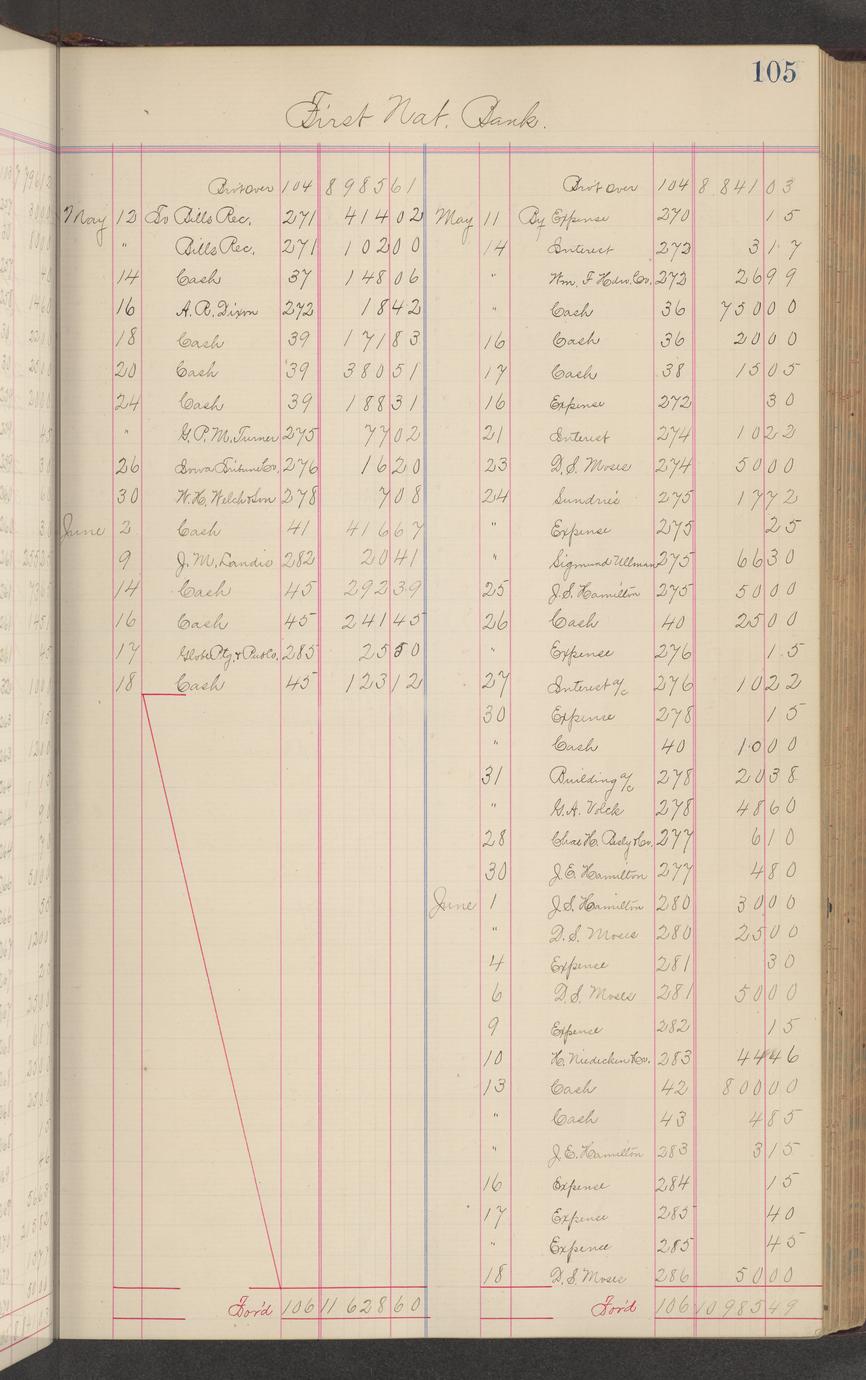 105
First Nat. Bank.
Bro't over 104 8 985 61
May 12 To Bills Rec. 271 414 02
" Bills Rec. 271 102 00
14 Cash 37 148 06
16 A.R. Dixon 272 18 42
18 Cash 39 171 83
20 Cash 39 380 51
24 Cash 39 188 31
" G.P.M. Turner 275 77 02
26 Iowa Tribune Co. 276 16 20
30 W.H. Welch & Son 278 7 08
June 2 Cash 41 416 67
9 J.M. Landis 282 20 41
14 Cash 45 292 39
16 Cash 45 241 45
17 Globe Ptg. & Pub Co. 285 25 50
18 Cash 45 123 12
For'd 106 11 628 60
Bro't over 104 8 841 03
May 11 By Expense 270 15
14 Interest 272 3 17
" Wm. F Hdw. Co. 272 26 99
" Cash 36 750 00
16 Cash 36 20 00
17 Cash 38 15 05
16 Expense 272 30
21 Interest 274 10 22
23 D.S. Moses 274 50 00
24 Sundries 275 17 72
" Expense 275 25
" Sigmund Ullman 275 66 30
25 J.S. Hamilton 275 50 00
26 Cash 40 25 00
" Expense 276 15
27 Interest a/c 276 10 22
30 Expense 278 15
" Cash 40 10 00
31 Building a/c 278 20 38
" G.A. Volck 278 48 60
28 Chas H. Besly & Co. 277 6 10
30 J.E. Hamilton 277 4 80
June 1 J.S. Hamilton 280 30 00
" D.S. Moses 280 25 00
4 Expense 281 30
6 D.S. Moses 281 50 00
9 Expense 282 15
10 H. Niedecken & Co. 283 44 46
13 Cash 42 800 00
" Cash 43 4 85
" J.E. Hamilton 283 3 15
16 Expense 284 15
17 Expense 285 40
" Expense 285 45
18 D.S. Moses 286 50 00
For'd 106 10 985 49